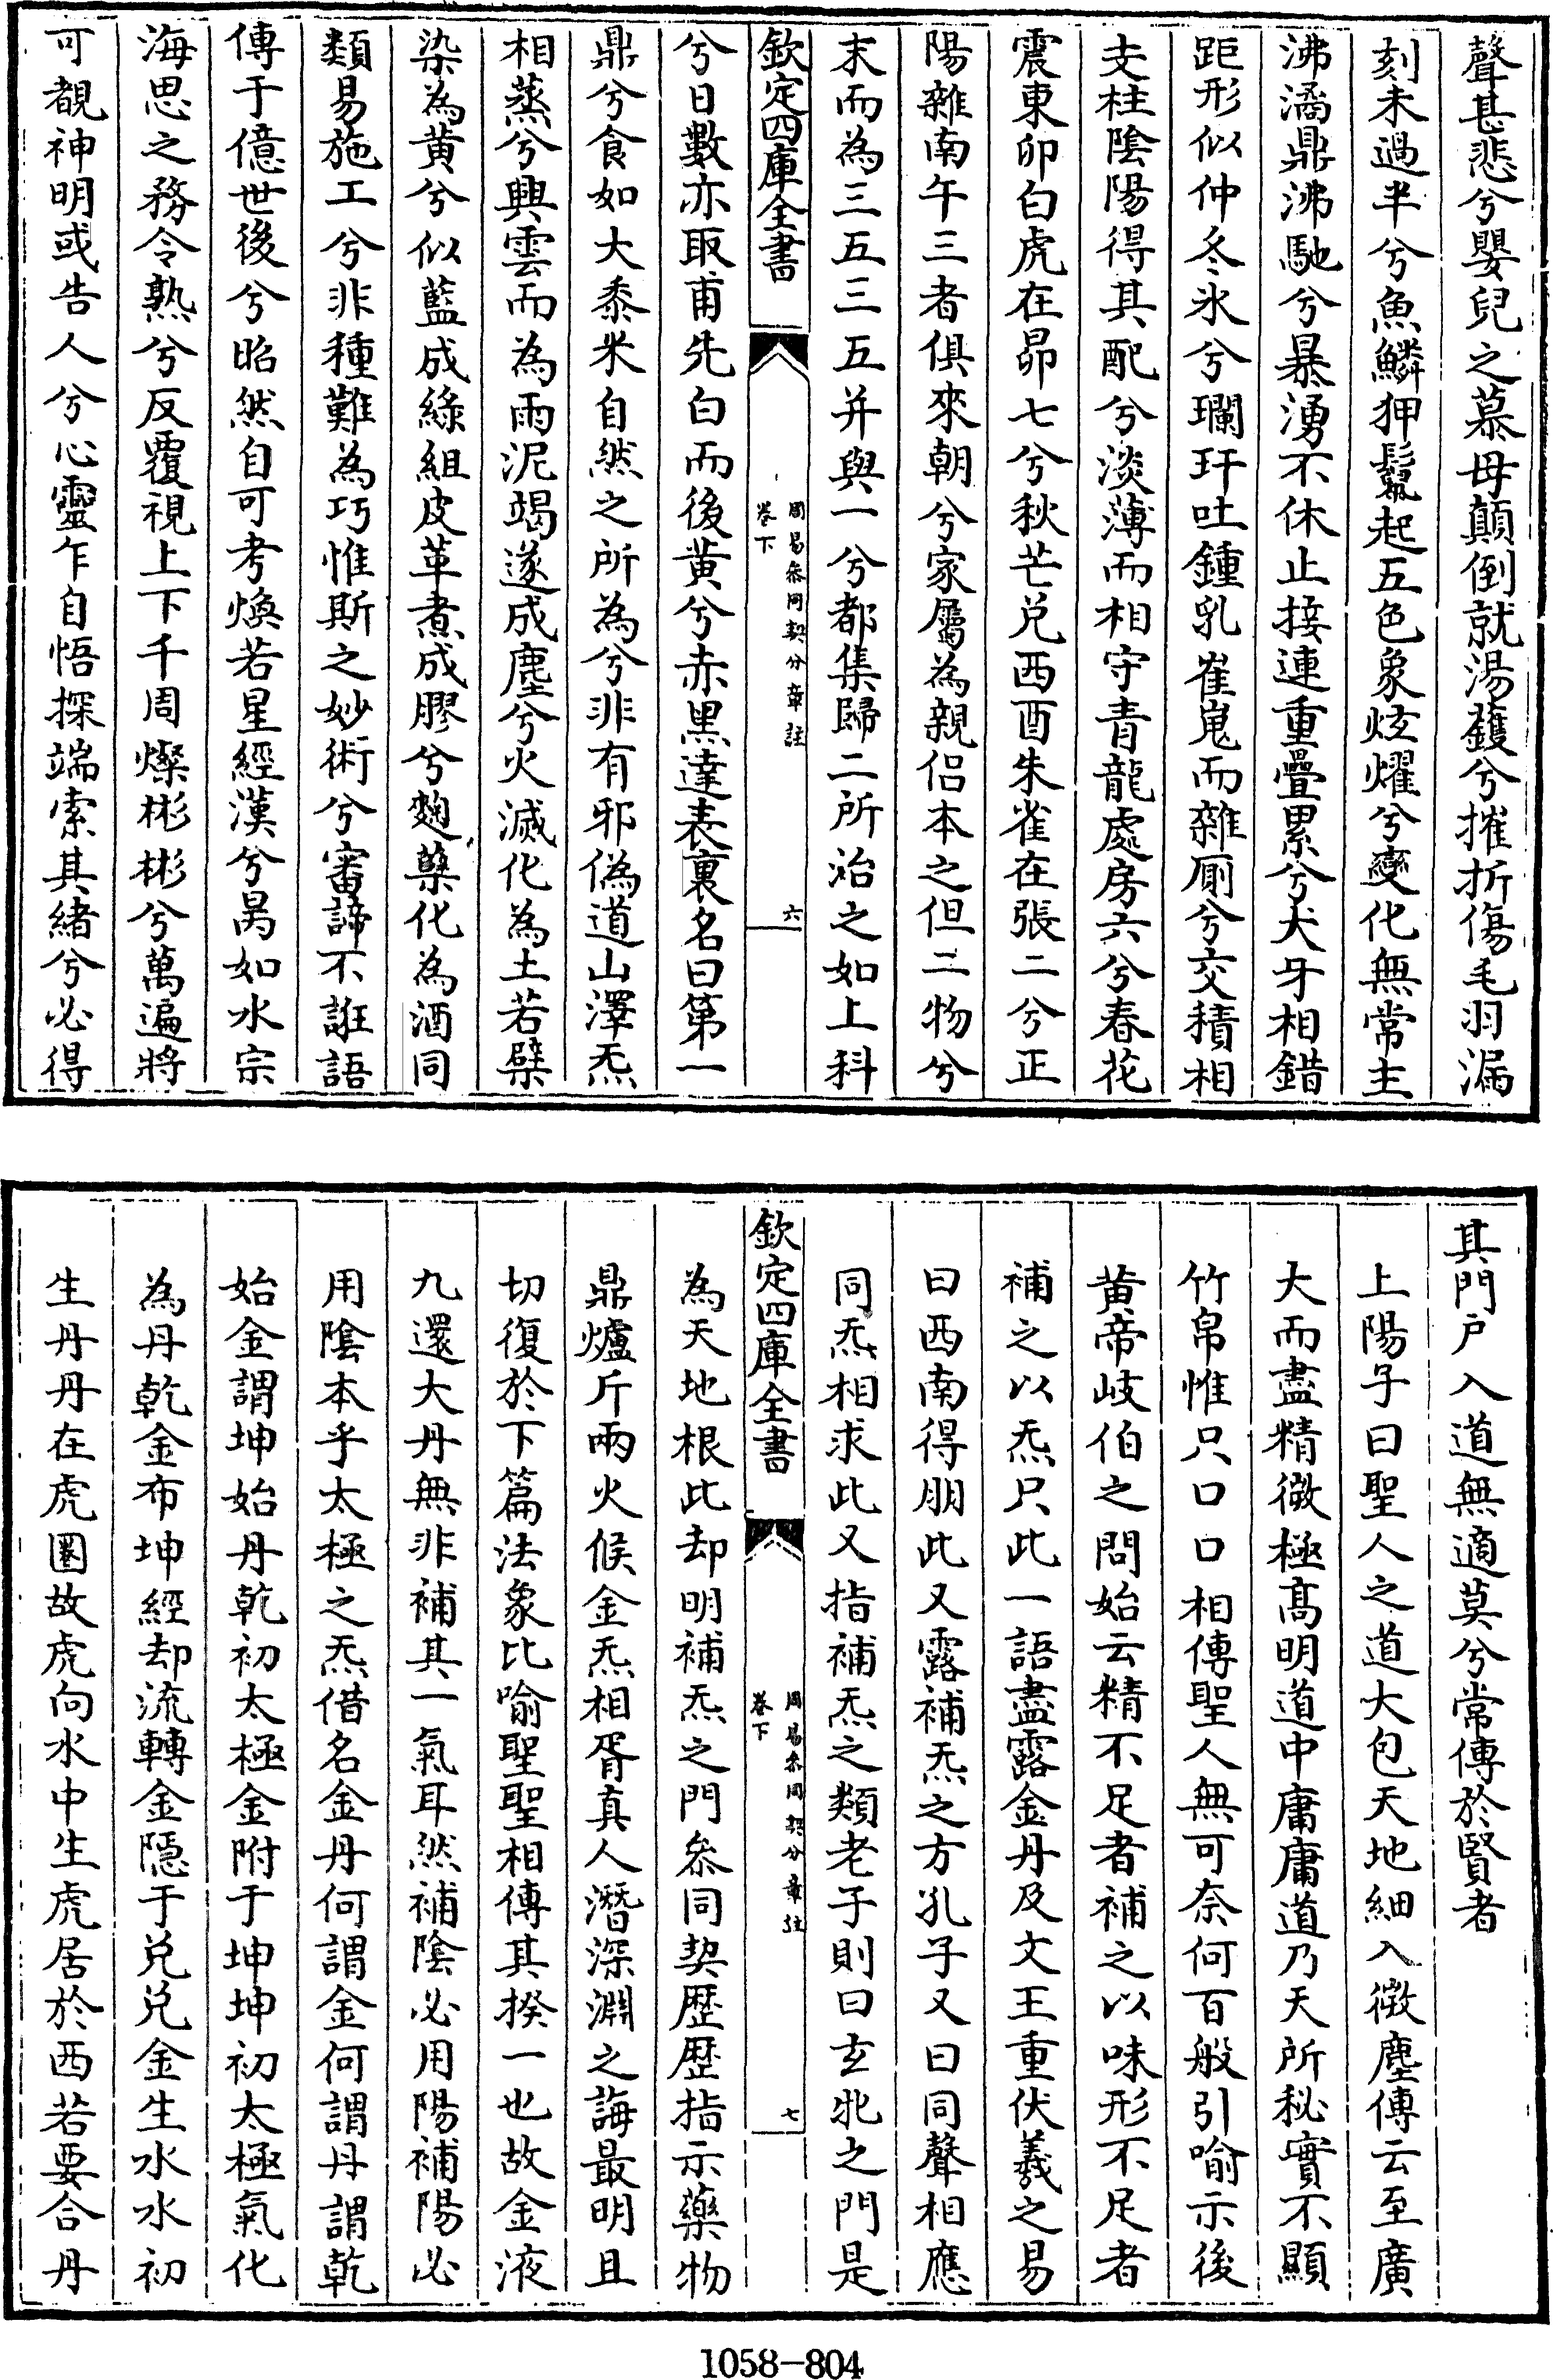 聲甚悲兮嬰兒之慕母顛倒就湯鑊兮摧折傷毛羽漏
刻未過半兮魚鱗狎鬛起五色象炫燿兮變化無常主
沸潏鼎沸馳兮暴湧不休止接連重疊累兮犬牙相錯
距形似仲冬氷兮瓓玕吐鍾乳崔嵬而雜厠兮交積相
支柱陰陽得其配兮淡薄而相守青龍處房六兮春花
震東卯白虎在昴七兮秋芒兑西酉朱雀在張二兮正
陽離南午三者俱來朝兮家屬為親侣本之但二物兮
末而為三五三五并與一兮都集歸二所治之如上科
欽定四庫全書
周易參同契分章註
卷下
六
兮日數亦取甫先白而後黄兮赤黑達表裏名曰第一
鼎兮食如大黍米自然之所為兮非有邪偽道山澤炁
相蒸兮興雲而為雨泥竭遂成塵兮火滅化為土若檗
染為黄兮似藍成綠組皮革煮成膠兮麴蘖化為酒同
類易施工兮非種難為巧惟斯之妙術兮審諦不誑語
傳于億世後兮昭然自可考煥若星經漢兮昺如水宗
海思之務令熟兮反覆視上下千周燦彬彬兮萬遍將
可覩神明或告人兮心靈乍自悟探端索其緒兮必得
其門户入道無適莫兮常傳於賢者
上陽子曰聖人之道大包天地細入微塵傳云至廣
大而盡精微極髙明道中庸庸道乃天所秘實不顯
竹帛惟只口口相傳聖人無可奈何百般引喻示後
黄帝岐伯之問始云精不足者補之以味形不足者
補之以炁只此一語盡露金丹及文王重伏羲之易
曰西南得朋此又露補炁之方孔子又曰同聲相應
同炁相求此又指補炁之類老子則曰玄牝之門是
欽定四庫全書
周易參同契分章註
卷下
七
為天地根此却明補炁之門叅同契歴歴指示藥物
鼎爐斤兩火候金炁相胥真人潛深淵之誨最明且
切復於下篇法象比喻聖聖相傳其揆一也故金液
九還大丹無非補其一氣耳然補陰必用陽補陽必
用陰本乎太極之炁借名金丹何謂金何謂丹謂乾
始金謂坤始丹乾初太極金附于坤坤初太極氣化
為丹乾金布坤經却流轉金隱于兑兑金生水水初
生丹丹在虎圏故虎向水中生虎居於西若要合丹
1058-804